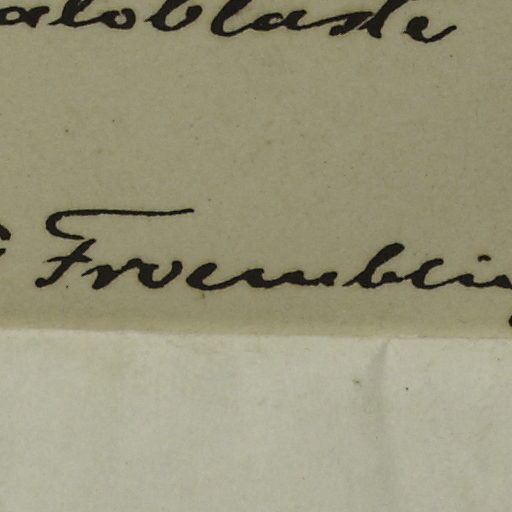 aloblaste
Froembling